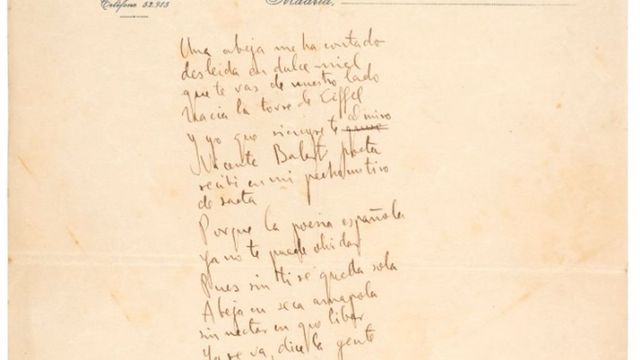 Teléfono 52.915
Madrid,
Una abeja me ha contado
desleida en dulce miel
que te vas de nuestro lado
hacia la torre de Eiffel
y yo que siempre te admiro
Vicente Balart poeta
recibí en mi pecho un tiro
de saeta
Porque la poesia española
ya no te puede olvidar
Pues sin tí se queda sola
Abeja en seca amapola
sin nectar en que libar
Ya se va, dice la gente